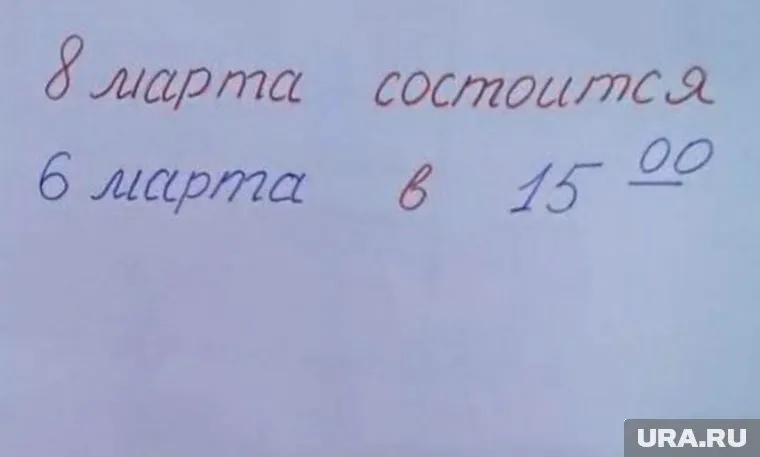 8 марта состоится
6 марта в 15 00
URA.RU